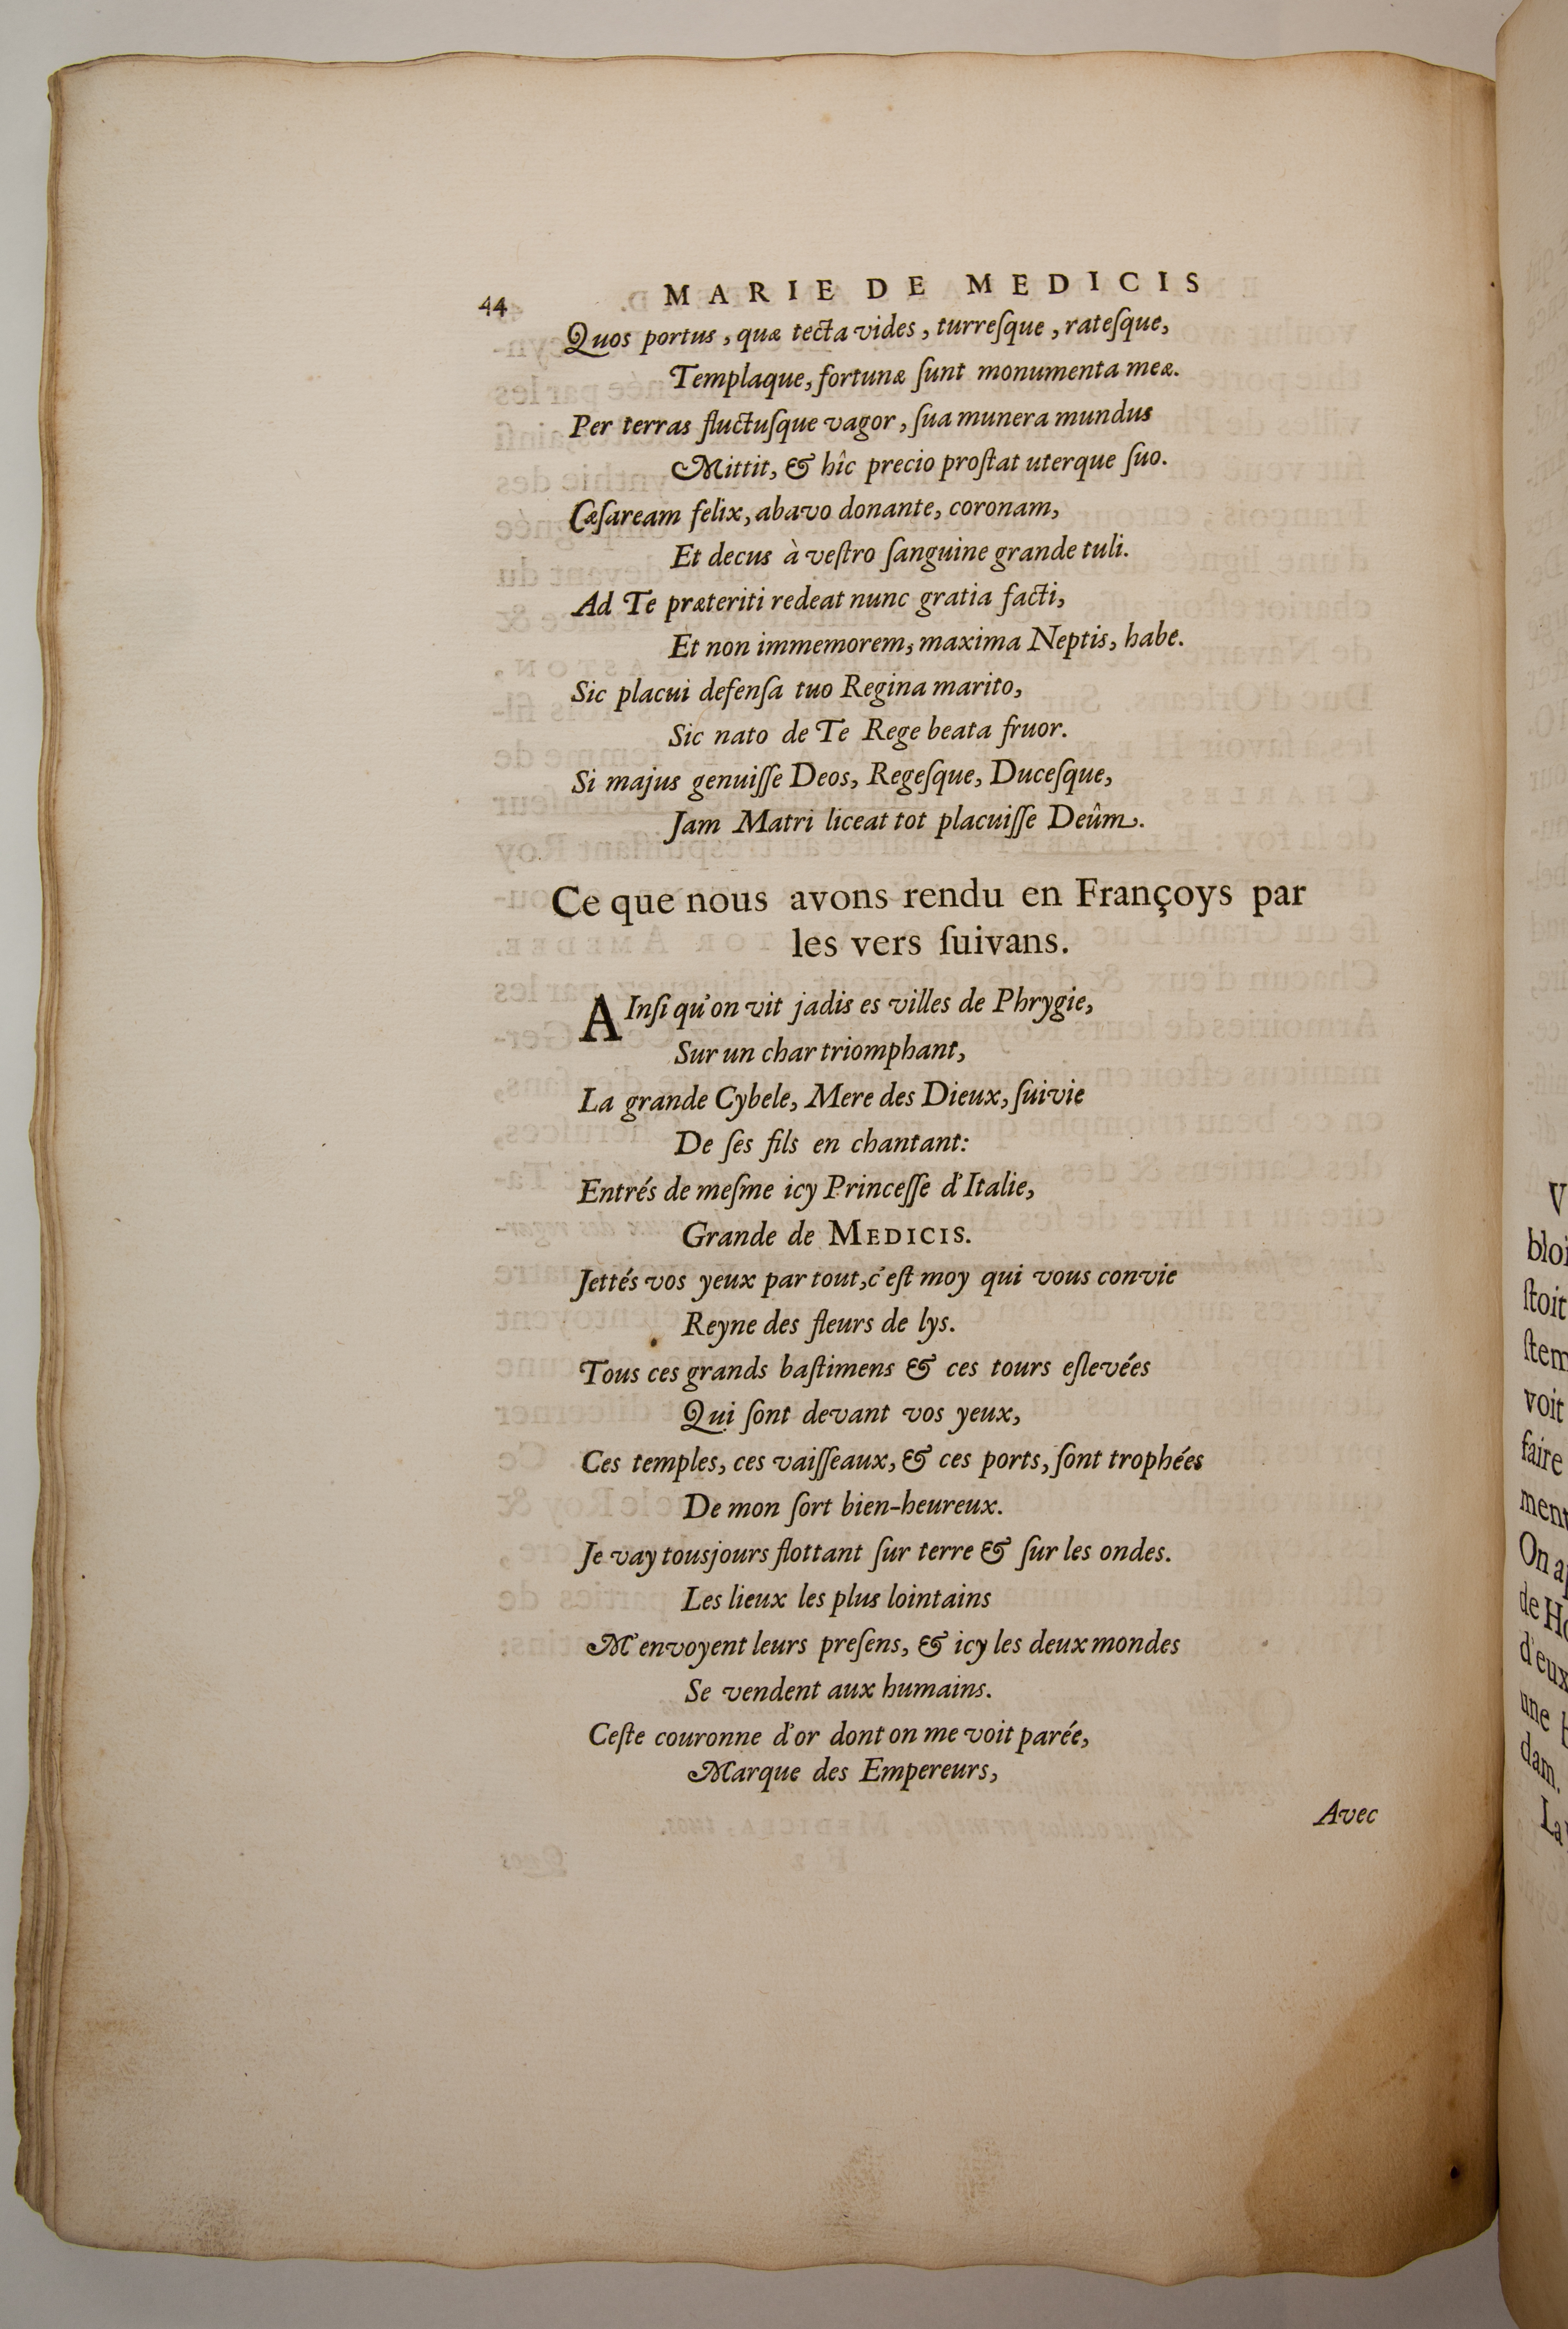 44
MARIE DE MEDICIS
Quos portus, quæ tecta vides, turreſque, rateſque,
Templaque, fortunæ ſunt monumenta meæ.
Per terras fluctuſque vagor, ſua munera mundus
Mittit, & hîc precio proſtat uterque ſuo.
Cæſaream felix, abavo donante, coronam,
Et decus à veſtro ſanguine grande tuli.
Ad Te præteriti redeat nunc gratia facti,
Et non immemorem, maxima Neptis, habe.
Sic placui defenſa tuo Regina marito,
Sic nato de Te Rege beata fruor.
Si majus genuiſſe Deos, Regeſque, Duceſque,
Jam Matri liceat tot placuiſſe Deûm.
Ce que nous avons rendu en Françoys par
les vers ſuivans.
AInſi qu'on vit jadis es villes de Phrygie,
Sur un char triomphant,
La grande Cybele, Mere des Dieux, ſuivie
De ſes fils en chantant:
Entrés de meſme icy Princeſſe d'Italie,
Grande de MEDICIS.
Jettés vos yeux par tout, c'eſt moy qui vous convie
Reyne des fleurs de lys.
Tous ces grands baſtimens & ces tours eſlevées
Qui ſont devant vos yeux,
Ces temples, ces vaiſſeaux, & ces ports, ſont trophées
De mon ſort bien-heureux.
Je vay tousjours flottant ſur terre & ſur les ondes.
Les lieux les plus lointains
M'envoyent leurs preſens, & icy les deux mondes
Se vendent aux humains.
Ceſte couronne d'or dont on me voit parée,
Marque des Empereurs,
Avec
V
bloi
ſtoit
ſtem
voit
faire
ment
On a
de Ho
d'eux
une
dam.
La